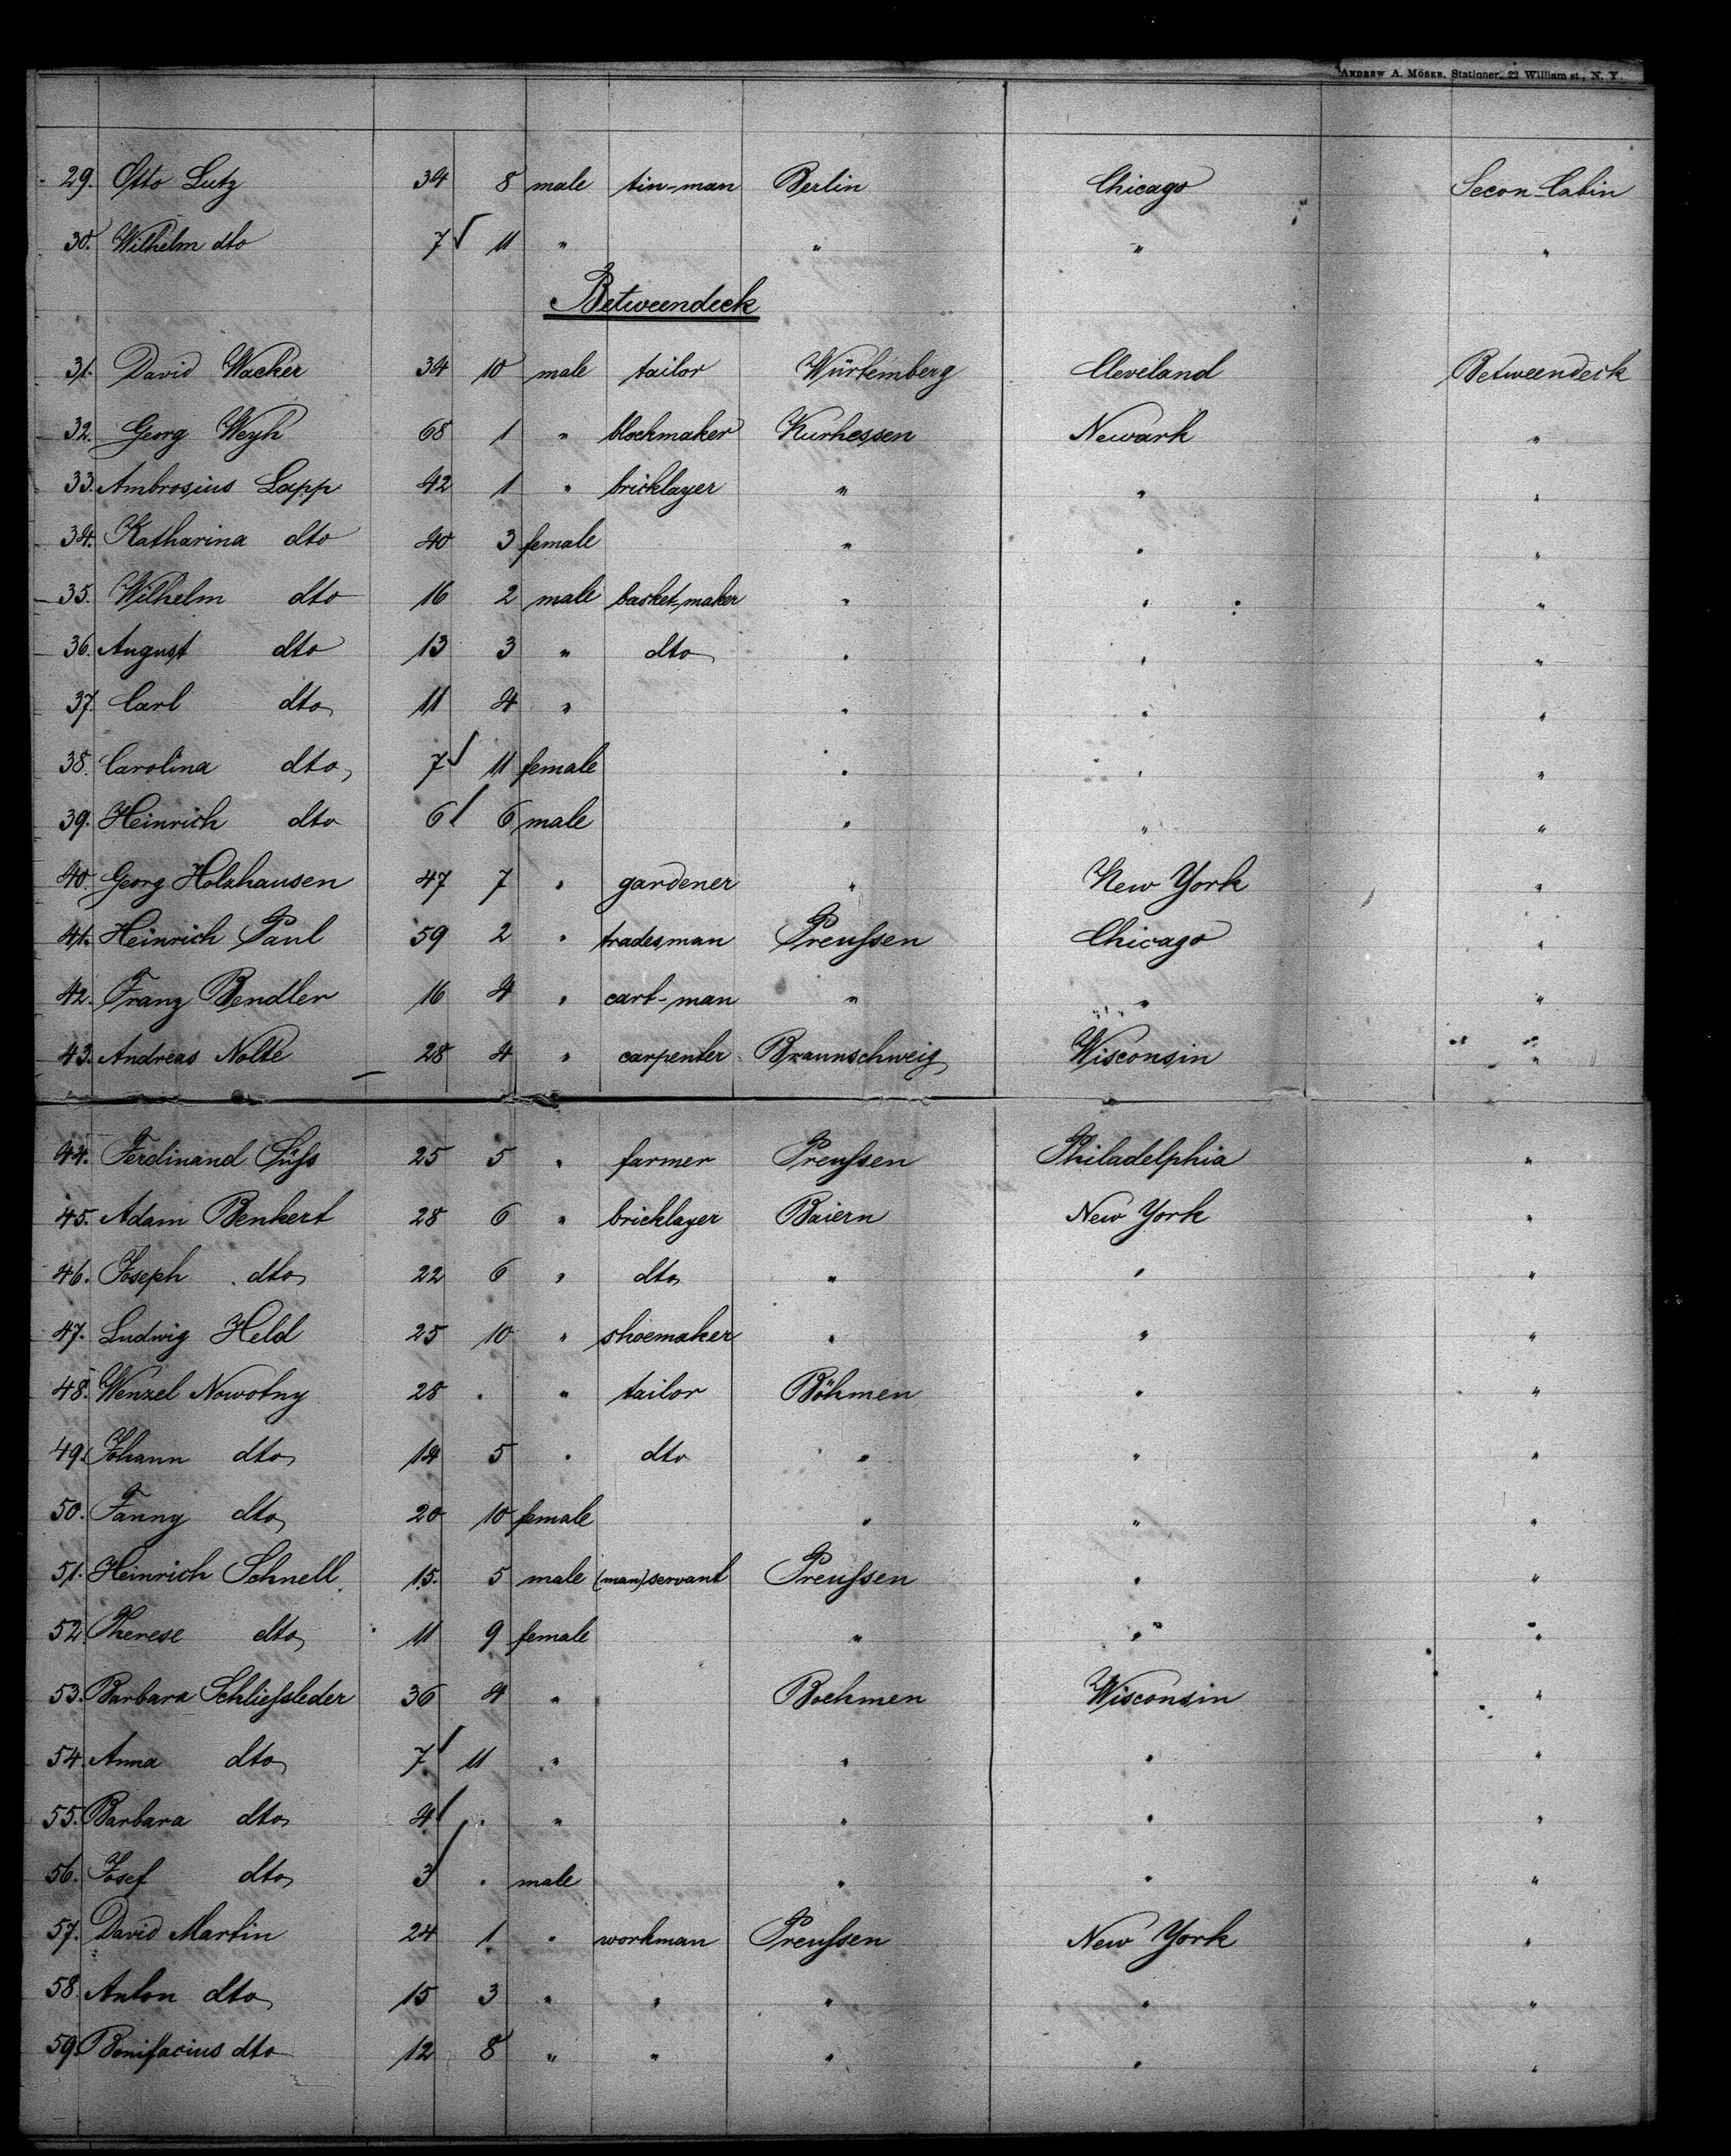 ANDREW A. MÖSER, Stationer, 22 William st., N. Y.
29. Otto Lutz 34 8 male tin-man Berlin Chicago Secon-Cabin
30. Wilhelm dto 7 11 " " " "
Betweendeck
31. David Wacker 34 10 male tailor Würtemberg Cleveland Betweendeck
32. Georg Weyh 68 1 " blockmaker Kurhessen Newark "
33. Ambrosius Lapp 42 1 " bricklayer " " "
34. Katharina dto 40 3 female " " "
35. Wilhelm dto 16 2 male basket-maker " " "
36. August dto 13 3 " dto " " "
37. Carl dto 11 4 " " " "
38. Carolina dto 7 11 female " " "
39. Heinrich dto 6 6 male " " "
40. Georg Holzhausen 47 7 " gardener " New York "
41. Heinrich Paul 59 2 " tradesman Preuſsen Chicago "
42. Franz Bendler 16 4 " cart-man " " "
43. Andreas Nolte 28 4 " carpenter Braunschweig Wisconsin "
44. Ferdinand Süſs 25 5 " farmer Preuſsen Philadelphia "
45. Adam Benkert 28 6 " bricklayer Baiern New York "
46. Joseph dto 22 6 " dto " " "
47. Ludwig Held 25 10 " shoemaker " " "
48. Wenzel Nowotny 28 . " tailor Böhmen " "
49. Johann dto 14 5 " dto " " "
50. Fanny dto 20 10 female " " "
51. Heinrich Schnell 15 5 male (man) servant Preuſsen " "
52. Therese dto 11 9 female " " "
53. Barbara Schlieſsleder 36 4 " Boehmen Wisconsin "
54. Anna dto 7 11 " " " "
55. Barbara dto 4 . " " " "
56. Josef dto 3 . male " " "
57. David Martin 24 1 " workman Preuſsen New York "
58. Anton dto 15 3 " " " " "
59. Bonifacius dto 12 8 " " " " "